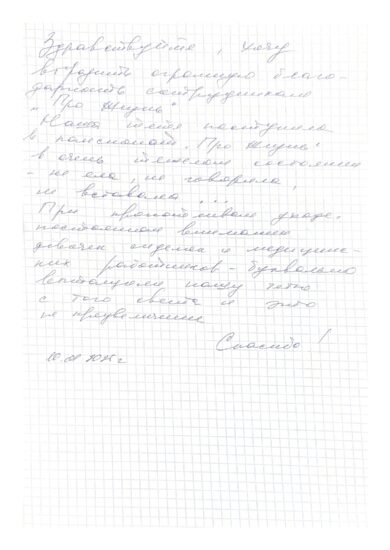 Здравствуйте, хочу
выразить огромную благо-
дарность сотрудникам
"Про Жизнь"
Наша тётя поступила
в пансионат "Про Жизнь"
в очень тяжелом состоянии
- не ела, не говорила,
не вставала ...
При кропотливом уходе,
постоянном внимании
девочек сиделок и медицинс-
ких работников - буквально
вытащили нашу тётю
с того света и это
не преувеличение
Спасибо!